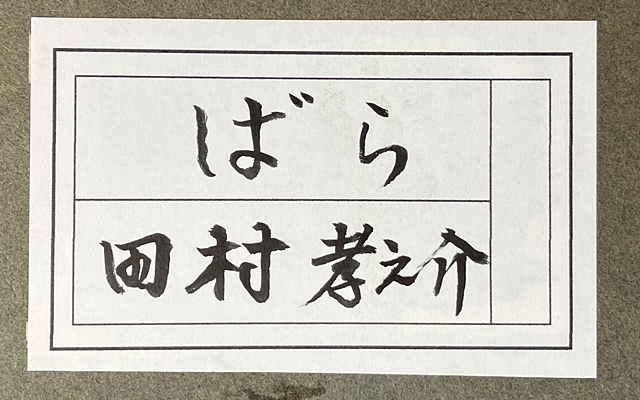 ばら
田村孝之介